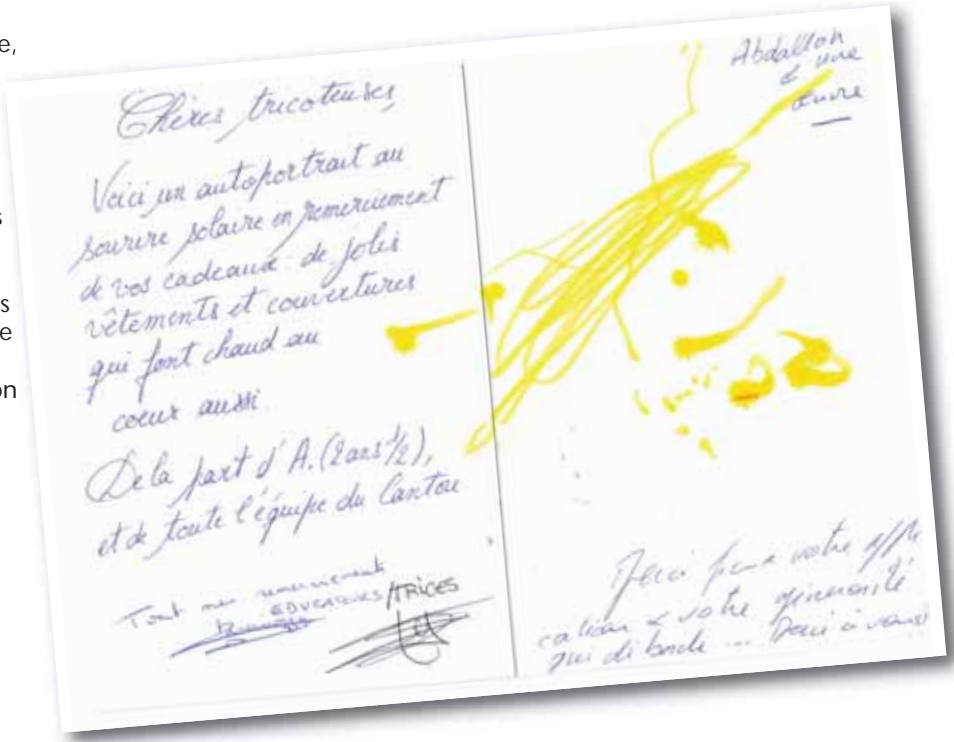 e,
s
s
e
on
Chères tricoteuses,
Voici un autoportrait au
sourire solaire en remerciement
de vos cadeaux de jolis
vêtements et couvertures
qui font chaud au
coeur aussi.
De la part d'A. (2 ans 1/2),
et de toute l'équipe du Cantou
Tout mes remerciements
EDUCATRICES/TRICES
Abdallah
& une
œuvre
Merci pour votre
& votre générosité
qui déborde ... Merci à vous!